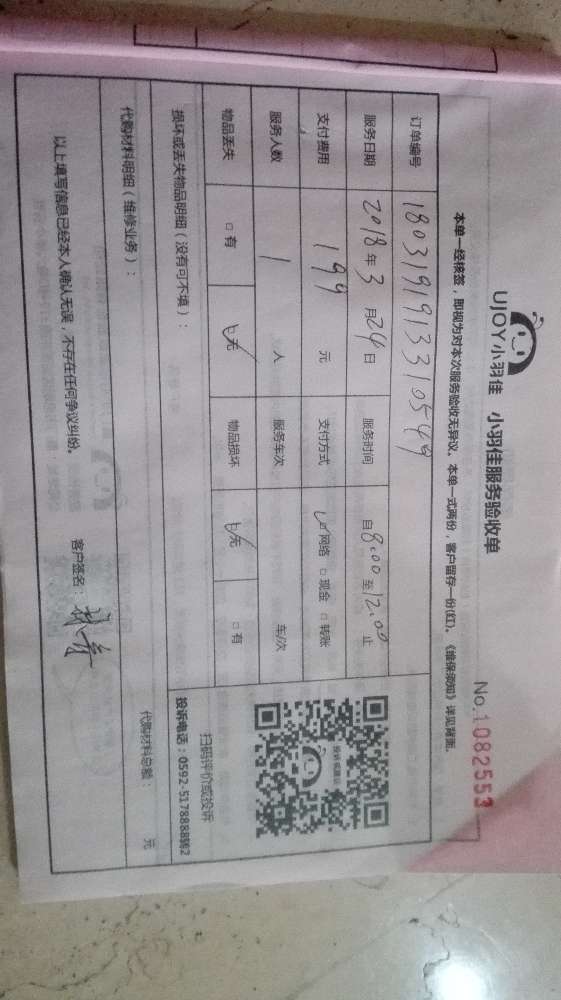 UJOY小羽佳 小羽佳服务验收单
No.1082553
本单一经核签，即视为对本次服务验收无异议。本单一式两份，客户留存一份(红)。《维保须知》详见背面。
订单编号 1803191913310549
服务日期 2018年3月24日 服务时间 自8:00至12:00止
支付费用 199 元 支付方式 ☑网络 □现金 □转账
服务人数 1 人 服务车次 车/次
物品丢失 □有 ☑无 物品损坏 ☑无 □有
投诉或建议
扫码评价或投诉
投诉电话：0592-5178888转2
损坏或丢失物品明细（没有可不填）：
代购材料明细（维修业务）： 代购材料总额： 元
以上填写信息已经本人确认无误，不存在任何争议纠纷。 客户签名：